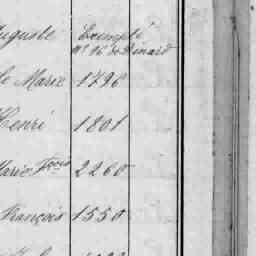 Auguste Exempté
n° 96 de Dinard
de Marie 1796
Henri 1801
Marie Fçois 2260
François 1550